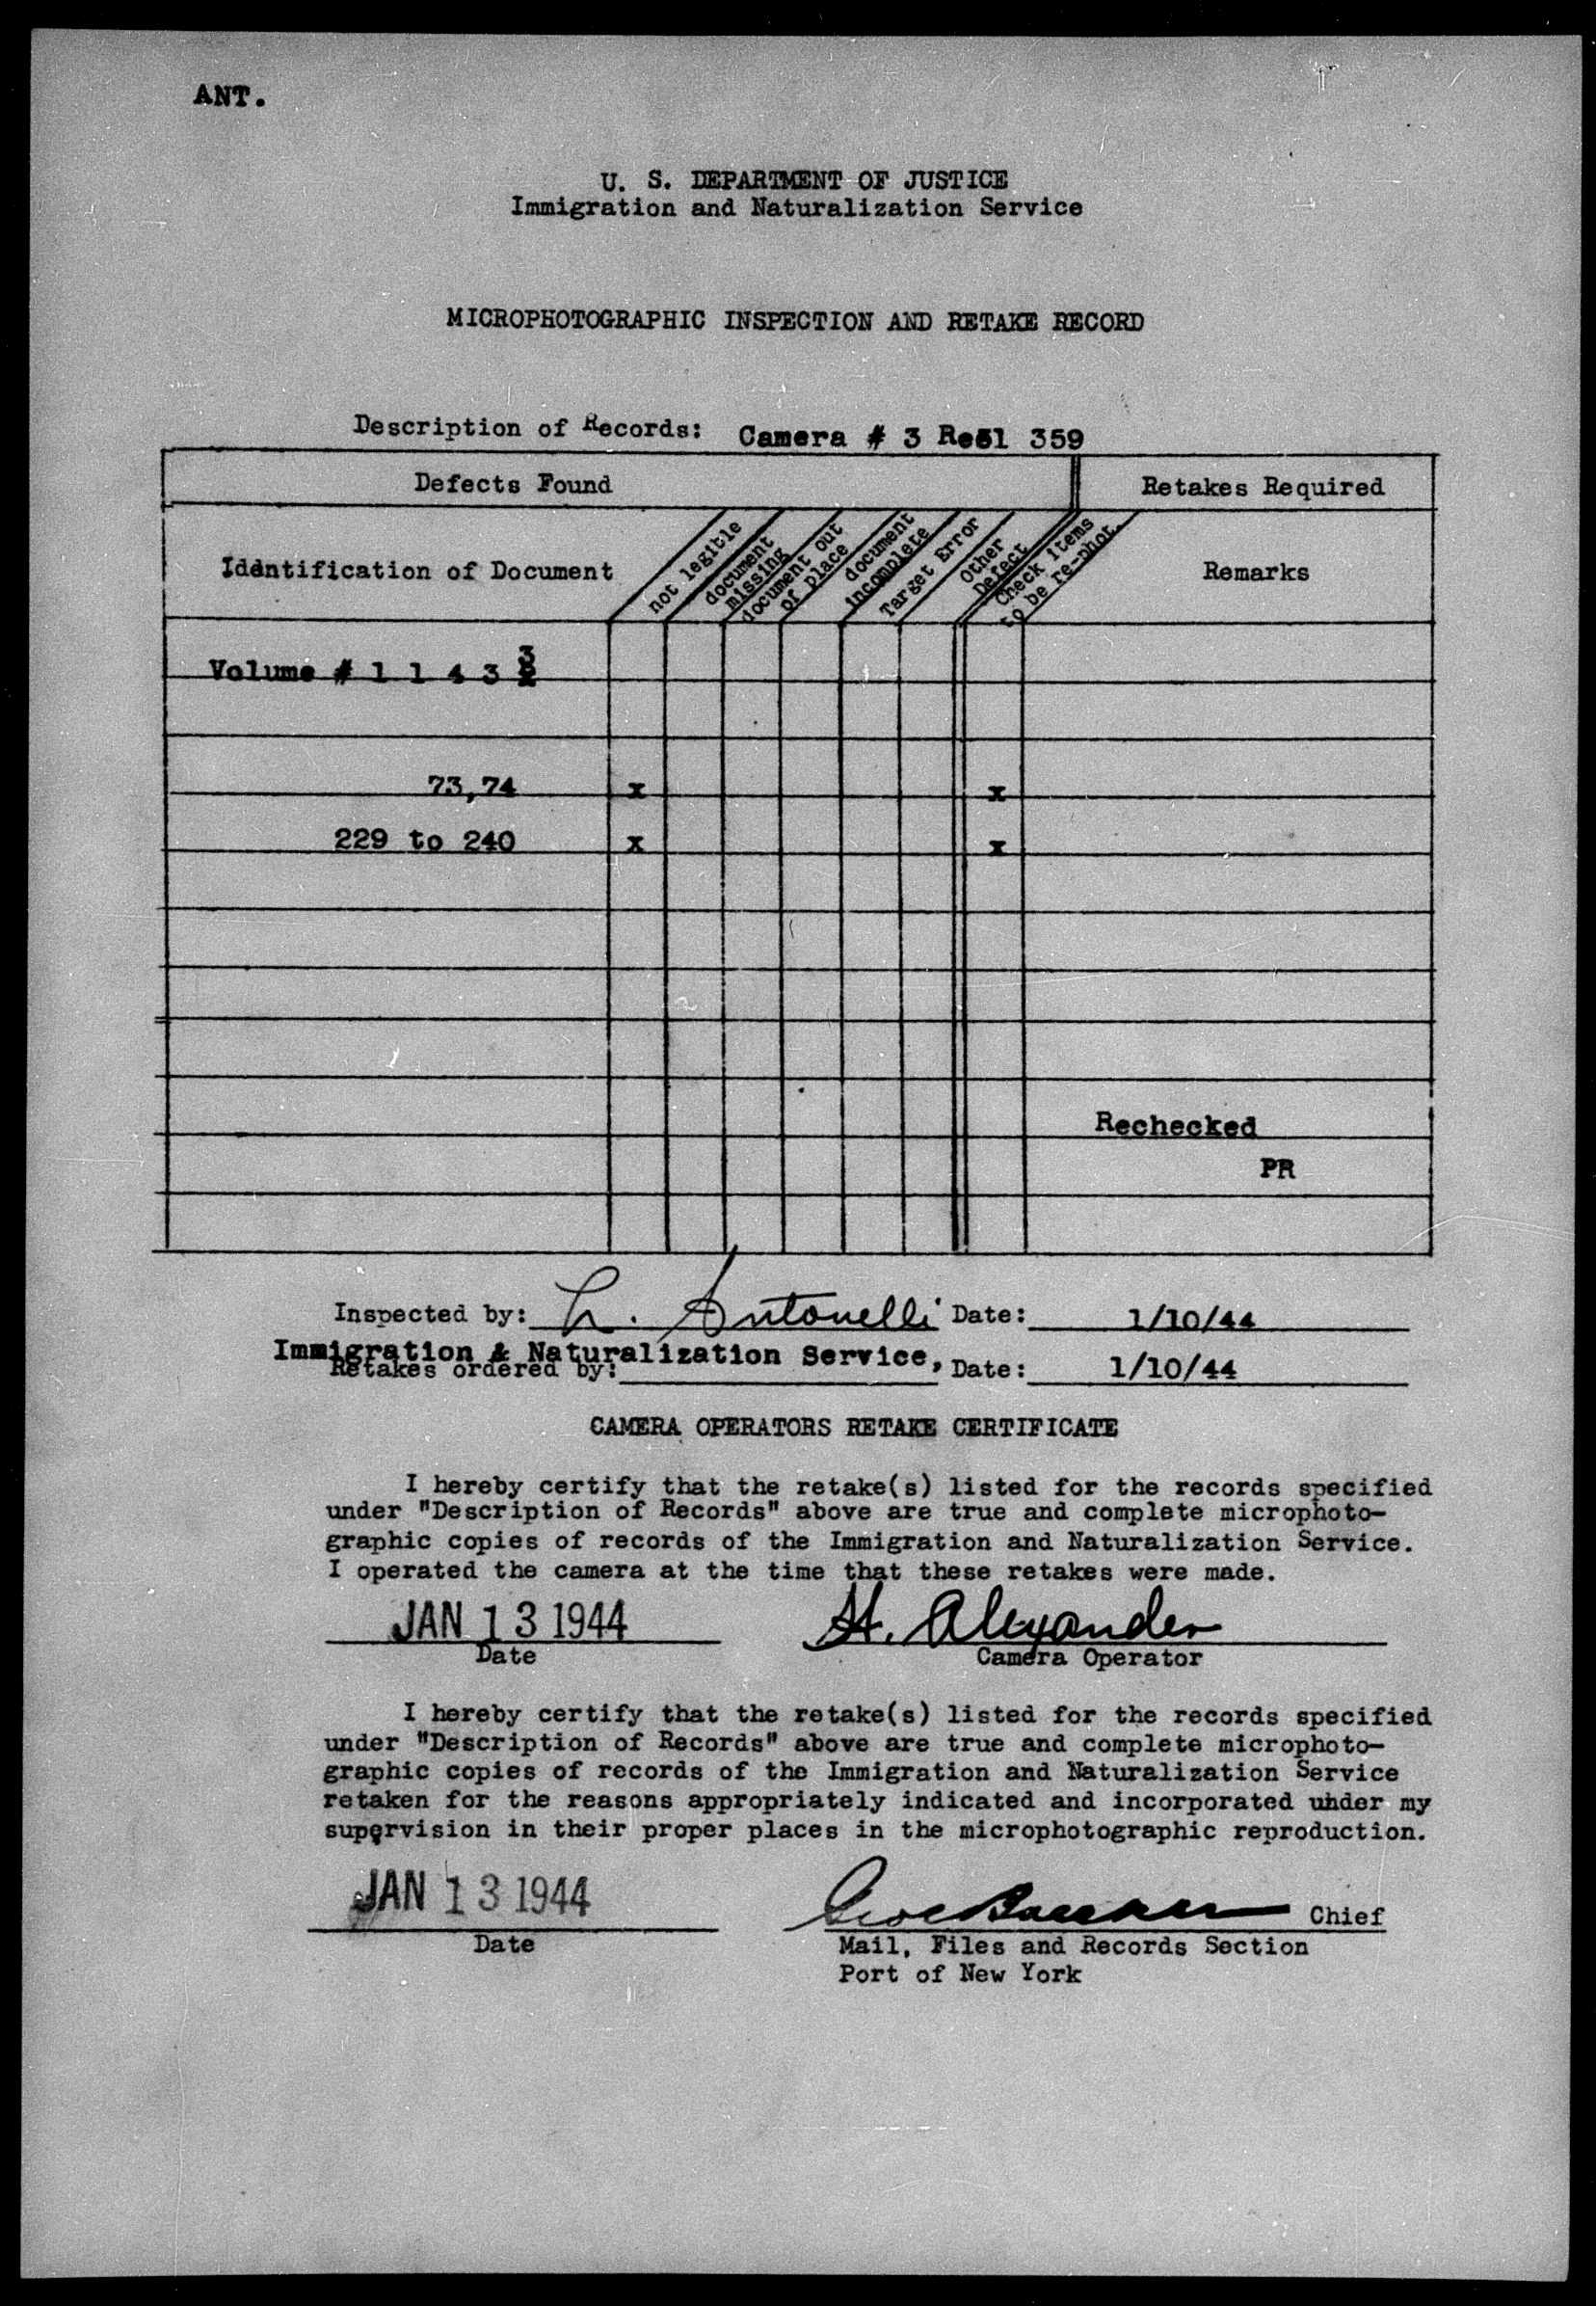 ANT.
U. S. DEPARTMENT OF JUSTICE
Immigration and Naturalization Service
MICROPHOTOGRAPHIC INSPECTION AND RETAKE RECORD
Description of Records: Camera # 3 Reel 359
Defects Found
Retakes Required
Identification of Document
not legible
document missing
document out of place
document incomplete
Target Error
Other Defect
Check items to be re-phot.
Remarks
Volume # 1 1 4 3
73,74 x x
229 to 240 x x
Rechecked
PR
Inspected by: L. Antonelli Date: 1/10/44
Immigration & Naturalization Service,
Retakes ordered by: Date: 1/10/44
CAMERA OPERATORS RETAKE CERTIFICATE
I hereby certify that the retake(s) listed for the records specified
under "Description of Records" above are true and complete microphoto-
graphic copies of records of the Immigration and Naturalization Service.
I operated the camera at the time that these retakes were made.
JAN 13 1944 H. Alexander
Date Camera Operator
I hereby certify that the retake(s) listed for the records specified
under "Description of Records" above are true and complete microphoto-
graphic copies of records of the Immigration and Naturalization Service
retaken for the reasons appropriately indicated and incorporated under my
supervision in their proper places in the microphotographic reproduction.
JAN 13 1944 Chief
Date Mail, Files and Records Section
Port of New York